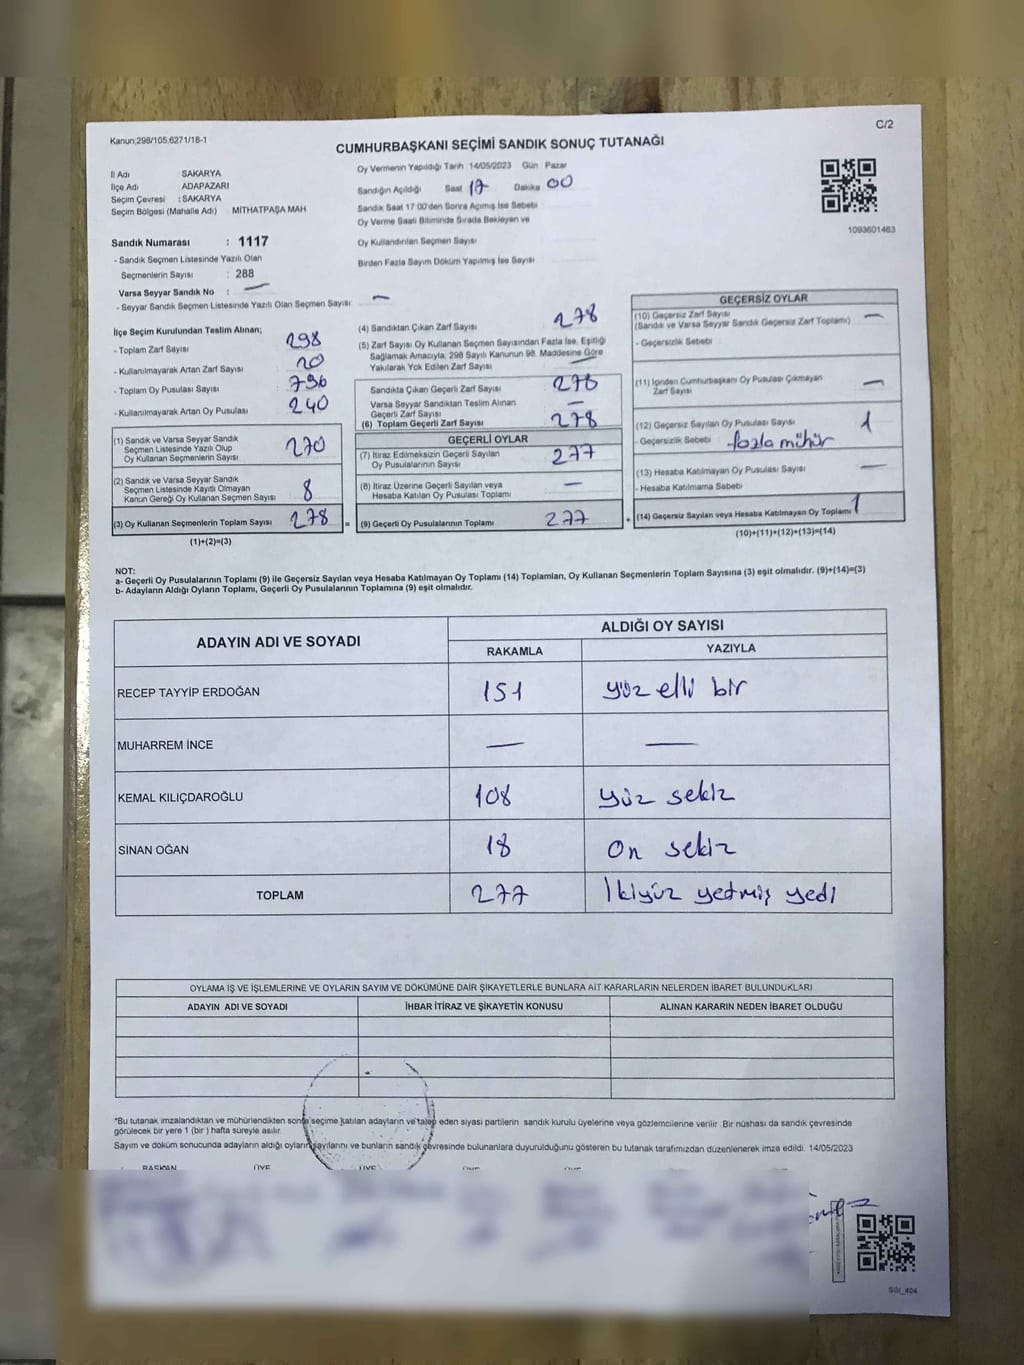 Kanun;298/105.6271/18-1
C/2
CUMHURBAŞKANI SEÇİMİ SANDIK SONUÇ TUTANAĞI
İl Adı : SAKARYA
İlçe Adı : ADAPAZARI
Seçim Çevresi : SAKARYA
Seçim Bölgesi (Mahalle Adı) : MİTHATPAŞA MAH
Oy Vermenin Yapıldığı Tarih :14/05/2023 Gün : Pazar
Sandığın Açıldığı Saat 17 Dakika 00
Sandık Saat 17:00'den Sonra Açımış İse Sebebi
Oy Verme Saati Bitiminde Sırada Bekleyen ve
Oy Kullandırılan Seçmen Sayısı
Birden Fazla Sayım Döküm Yapılmış İse Sayısı :
1093601463
Sandık Numarası : 1117
- Sandık Seçmen Listesinde Yazılı Olan
Seçmenlerin Sayısı : 288
Varsa Seyyar Sandık No : —
- Seyyar Sandık Seçmen Listesinde Yazılı Olan Seçmen Sayısı: —
İlçe Seçim Kurulundan Teslim Alınan;
- Toplam Zarf Sayısı 298
- Kullanılmayarak Artan Zarf Sayısı 20
- Toplam Oy Pusulası Sayısı
- Kullanılmayarak Artan Oy Pusulası 240
(1) Sandık ve Varsa Seyyar Sandık
Seçmen Listesinde Yazılı Olup
Oy Kullanan Seçmenlerin Sayısı 270
(2) Sandık ve Varsa Seyyar Sandık
Seçmen Listesinde Kayıtlı Olmayan
Kanun Gereği Oy Kullanan Seçmen Sayısı 8
(3) Oy Kullanan Seçmenlerin Toplam Sayısı 278 =
(1)+(2)=(3)
(4) Sandıktan Çıkan Zarf Sayısı 278
(5) Zarf Sayısı Oy Kullanan Seçmen Sayısından Fazla İse, Eşitliği
Sağlamak Amacıyla, 298 Sayılı Kanunun 98. Maddesine Göre
Yakılarak Yok Edilen Zarf Sayısı —
Sandıkta Çıkan Geçerli Zarf Sayısı 278
Varsa Seyyar Sandıktan Teslim Alınan
Geçerli Zarf Sayısı —
(6) Toplam Geçerli Zarf Sayısı 278
GEÇERLİ OYLAR
(7) İtiraz Edilmeksizin Geçerli Sayılan
Oy Pusulalarının Sayısı 277
(8) İtiraz Üzerine Geçerli Sayılan veya
Hesaba Katılan Oy Pusulası Toplamı —
(9) Geçerli Oy Pusulalarının Toplamı 277 +
GEÇERSİZ OYLAR
(10) Geçersiz Zarf Sayısı —
(Sandık ve Varsa Seyyar Sandık Geçersiz Zarf Toplamı)
- Geçersizlik Sebebi
(11) İçinden Cumhurbaşkanı Oy Pusulası Çıkmayan
Zarf Sayısı —
(12) Geçersiz Sayılan Oy Pusulası Sayısı 1
- Geçersizlik Sebebi - fazla mühür
(13) Hesaba Katılmayan Oy Pusulası Sayısı —
- Hesaba Katılmama Sebebi
(14) Geçersiz Sayılan veya Hesaba Katılmayan Oy Toplamı 1
(10)+(11)+(12)+(13)=(14)
NOT:
a- Geçerli Oy Pusulalarının Toplamı (9) ile Geçersiz Sayılan veya Hesaba Katılmayan Oy Toplamı (14) Toplamları, Oy Kullanan Seçmenlerin Toplam Sayısına (3) eşit olmalıdır. (9)+(14)=(3)
b- Adayların Aldığı Oyların Toplamı, Geçerli Oy Pusulalarının Toplamına (9) eşit olmalıdır.
ADAYIN ADI VE SOYADI
ALDIĞI OY SAYISI
RAKAMLA YAZIYLA
RECEP TAYYİP ERDOĞAN 151 yüz elli bir
MUHARREM İNCE — —
KEMAL KILIÇDAROĞLU 108 yüz sekiz
SİNAN OĞAN 18 On sekiz
TOPLAM 277 İkiyüz yetmiş yedi
OYLAMA İŞ VE İŞLEMLERİNE VE OYLARIN SAYIM VE DÖKÜMÜNE DAİR ŞİKAYETLERLE BUNLARA AİT KARARLARIN NELERDEN İBARET BULUNDUKLARI
ADAYIN ADI VE SOYADI İHBAR İTİRAZ VE ŞİKAYETİN KONUSU ALINAN KARARIN NEDEN İBARET OLDUĞU
*Bu tutanak imzalandıktan ve mühürlendikten sonra seçime katılan adayların ve talep eden siyasi partilerin sandık kurulu üyelerine veya gözlemcilerine verilir. Bir nüshası da sandık çevresinde
görülecek bir yere 1 (bir) hafta süreyle asılır.
Sayım ve döküm sonucunda adayların aldığı oyların sayılarını ve bunların sandık çevresinde bulunanlara duyurulduğunu gösteren bu tutanak tarafımızdan düzenlenerek imza edildi. 14/05/2023
BAŞKAN ÜYE ÜYE